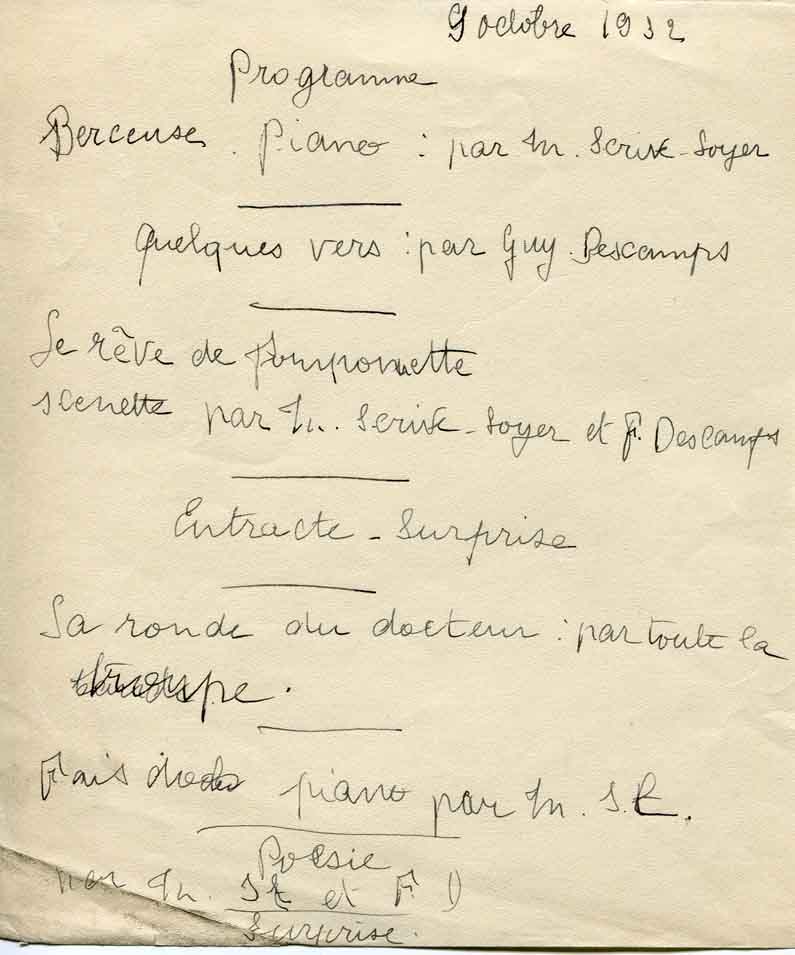 9 octobre 1932
Programme
Berceuse. Piano : par M. Scrive-Loyer
Quelques vers : par Guy. Descamps
Le rêve de Pomponnette
scenette par M. Scrive-Loyer et F. Descamps
Entracte - Surprise
La ronde du docteur : par toute la
troupe.
Fais dodo piano par M. S.L.
Poesie
par M. SL et F D
Surprise.